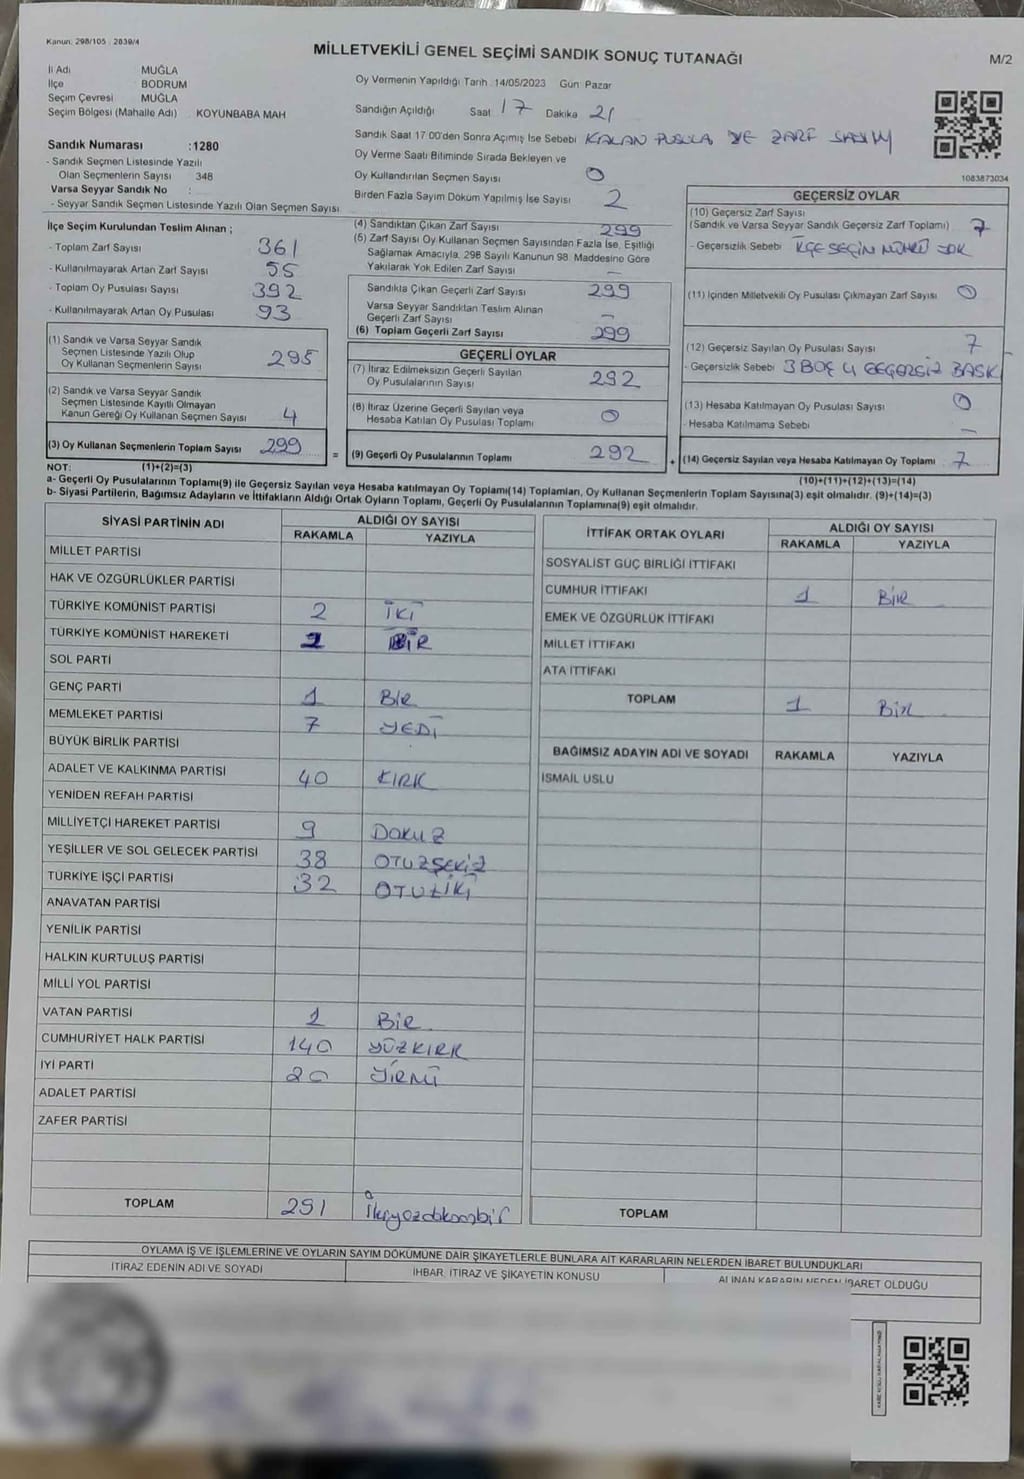 Kanun: 298/105 : 2839/4
MİLLETVEKİLİ GENEL SEÇİMİ SANDIK SONUÇ TUTANAĞI
M/2
İl Adı MUĞLA
İlçe BODRUM
Seçim Çevresi MUĞLA
Seçim Bölgesi (Mahalle Adı) KOYUNBABA MAH
Sandık Numarası :1280
- Sandık Seçmen Listesinde Yazılı
Olan Seçmenlerin Sayısı 348
Varsa Seyyar Sandık No :
- Seyyar Sandık Seçmen Listesinde Yazılı Olan Seçmen Sayısı
Oy Vermenin Yapıldığı Tarih : 14/05/2023 Gün: Pazar
Sandığın Açıldığı Saat 17 Dakika 21
Sandık Saat 17:00'den Sonra Açımış İse Sebebi KALAN PUSULA VE ZARF SAYIM
Oy Verme Saati Bitiminde Sırada Bekleyen ve
Oy Kullandırılan Seçmen Sayısı 0
Birden Fazla Sayım Döküm Yapılmış İse Sayısı 2
1083873034
İlçe Seçim Kurulundan Teslim Alınan ;
- Toplam Zarf Sayısı 361
- Kullanılmayarak Artan Zarf Sayısı 55
- Toplam Oy Pusulası Sayısı 392
- Kullanılmayarak Artan Oy Pusulası 93
(1) Sandık ve Varsa Seyyar Sandık
Seçmen Listesinde Yazılı Olup
Oy Kullanan Seçmenlerin Sayısı 295
(2) Sandık ve Varsa Seyyar Sandık
Seçmen Listesinde Kayıtlı Olmayan
Kanun Gereği Oy Kullanan Seçmen Sayısı 4
(3) Oy Kullanan Seçmenlerin Toplam Sayısı 299
(4) Sandıktan Çıkan Zarf Sayısı 299
(5) Zarf Sayısı Oy Kullanan Seçmen Sayısından Fazla İse, Eşitliği
Sağlamak Amacıyla, 298 Sayılı Kanunun 98. Maddesine Göre
Yakılarak Yok Edilen Zarf Sayısı —
Sandıkta Çıkan Geçerli Zarf Sayısı 299
Varsa Seyyar Sandıktan Teslim Alınan
Geçerli Zarf Sayısı —
(6) Toplam Geçerli Zarf Sayısı 299
GEÇERLİ OYLAR
(7) İtiraz Edilmeksizin Geçerli Sayılan
Oy Pusulalarının Sayısı 292
(8) İtiraz Üzerine Geçerli Sayılan veya
Hesaba Katılan Oy Pusulası Toplamı 0
= (9) Geçerli Oy Pusulalarının Toplamı 292
GEÇERSİZ OYLAR
(10) Geçersiz Zarf Sayısı
(Sandık ve Varsa Seyyar Sandık Geçersiz Zarf Toplamı) 7
- Geçersizlik Sebebi İLÇE SEÇİM MÜHRÜ YOK
(11) İçinden Milletvekili Oy Pusulası Çıkmayan Zarf Sayısı 0
(12) Geçersiz Sayılan Oy Pusulası Sayısı 7
- Geçersizlik Sebebi 3 BOŞ 4 GEÇERSİZ BASK
(13) Hesaba Katılmayan Oy Pusulası Sayısı 0
- Hesaba Katılmama Sebebi —
+ (14) Geçersiz Sayılan veya Hesaba Katılmayan Oy Toplamı 7
NOT: (1)+(2)=(3) (10)+(11)+(12)+(13)=(14)
a- Geçerli Oy Pusulalarının Toplamı(9) ile Geçersiz Sayılan veya Hesaba katılmayan Oy Toplamı(14) Toplamları, Oy Kullanan Seçmenlerin Toplam Sayısına(3) eşit olmalıdır. (9)+(14)=(3)
b- Siyasi Partilerin, Bağımsız Adayların ve İttifakların Aldığı Ortak Oyların Toplamı, Geçerli Oy Pusulalarının Toplamına(9) eşit olmalıdır.
SİYASİ PARTİNİN ADI ALDIĞI OY SAYISI
RAKAMLA YAZIYLA
MİLLET PARTİSİ
HAK VE ÖZGÜRLÜKLER PARTİSİ
TÜRKİYE KOMÜNİST PARTİSİ 2 İKİ
TÜRKİYE KOMÜNİST HAREKETİ 1 BİR
SOL PARTİ
GENÇ PARTİ 1 BİR
MEMLEKET PARTİSİ 7 YEDİ
BÜYÜK BİRLİK PARTİSİ
ADALET VE KALKINMA PARTİSİ 40 KIRK
YENİDEN REFAH PARTİSİ
MİLLİYETÇİ HAREKET PARTİSİ 9 DOKUZ
YEŞİLLER VE SOL GELECEK PARTİSİ 38 OTUZSEKİZ
TÜRKİYE İŞÇİ PARTİSİ 32 OTUZİKİ
ANAVATAN PARTİSİ
YENİLİK PARTİSİ
HALKIN KURTULUŞ PARTİSİ
MİLLİ YOL PARTİSİ
VATAN PARTİSİ 1 BİR
CUMHURİYET HALK PARTİSİ 140 YÜZKIRK
İYİ PARTİ 20 YİRMİ
ADALET PARTİSİ
ZAFER PARTİSİ
TOPLAM 291 İkiyüzdoksanbir
İTTİFAK ORTAK OYLARI ALDIĞI OY SAYISI
RAKAMLA YAZIYLA
SOSYALİST GÜÇ BİRLİĞİ İTTİFAKI
CUMHUR İTTİFAKI 1 BİR
EMEK VE ÖZGÜRLÜK İTTİFAKI
MİLLET İTTİFAKI
ATA İTTİFAKI
TOPLAM 1 BİR
BAĞIMSIZ ADAYIN ADI VE SOYADI RAKAMLA YAZIYLA
İSMAİL USLU
TOPLAM
OYLAMA İŞ VE İŞLEMLERİNE VE OYLARIN SAYIM DÖKÜMÜNE DAİR ŞİKAYETLERLE BUNLARA AİT KARARLARIN NELERDEN İBARET BULUNDUKLARI
İTİRAZ EDENİN ADI VE SOYADI İHBAR, İTİRAZ VE ŞİKAYETİN KONUSU ALINAN KARARIN NEDEN İBARET OLDUĞU